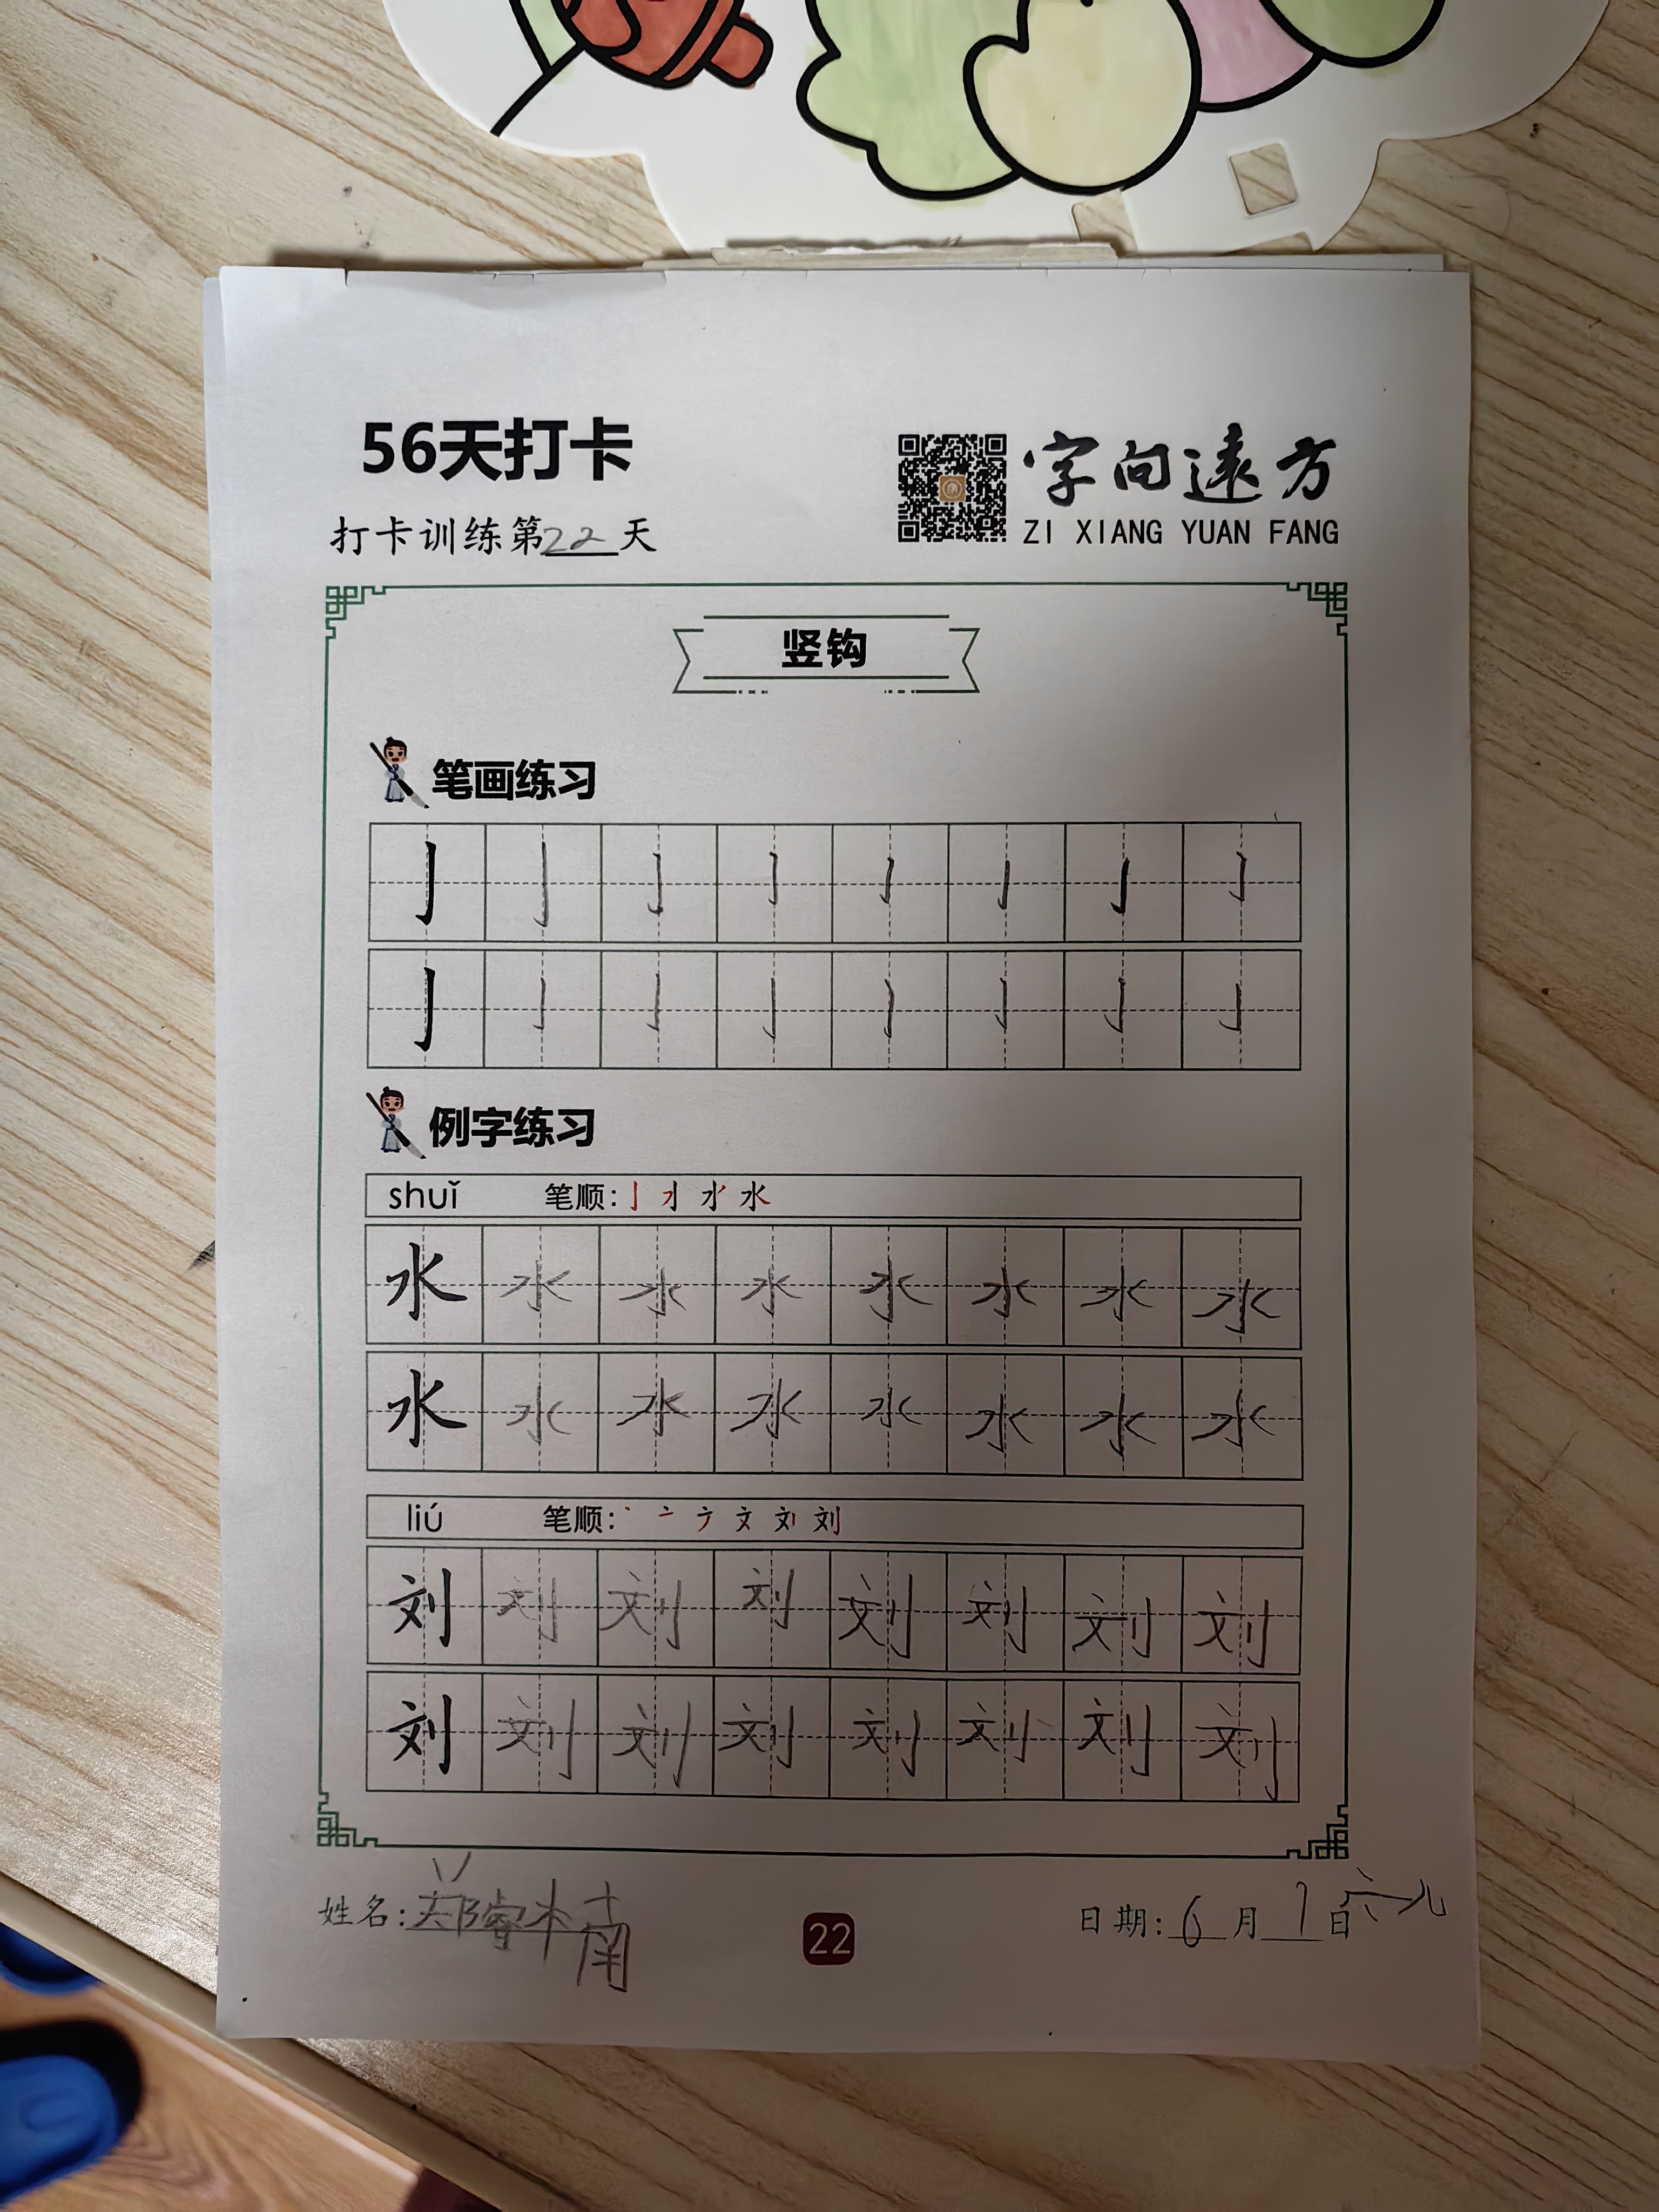 56天打卡
字向遠方
打卡训练第22天
ZI XIANG YUAN FANG
竖钩
笔画练习
亅 亅 亅 亅 亅 亅 亅 亅
亅 亅 亅 亅 亅 亅 亅 亅
例字练习
shuǐ 笔顺:
水 水 水 水 水 水 水 水
水 水 水 水 水 水 水 水
liú 笔顺:
刘 刘 刘 刘 刘 刘 刘 刘
刘 刘 刘 刘 刘 刘 刘 刘
姓名:郑睿楠
22
日期:6月1日